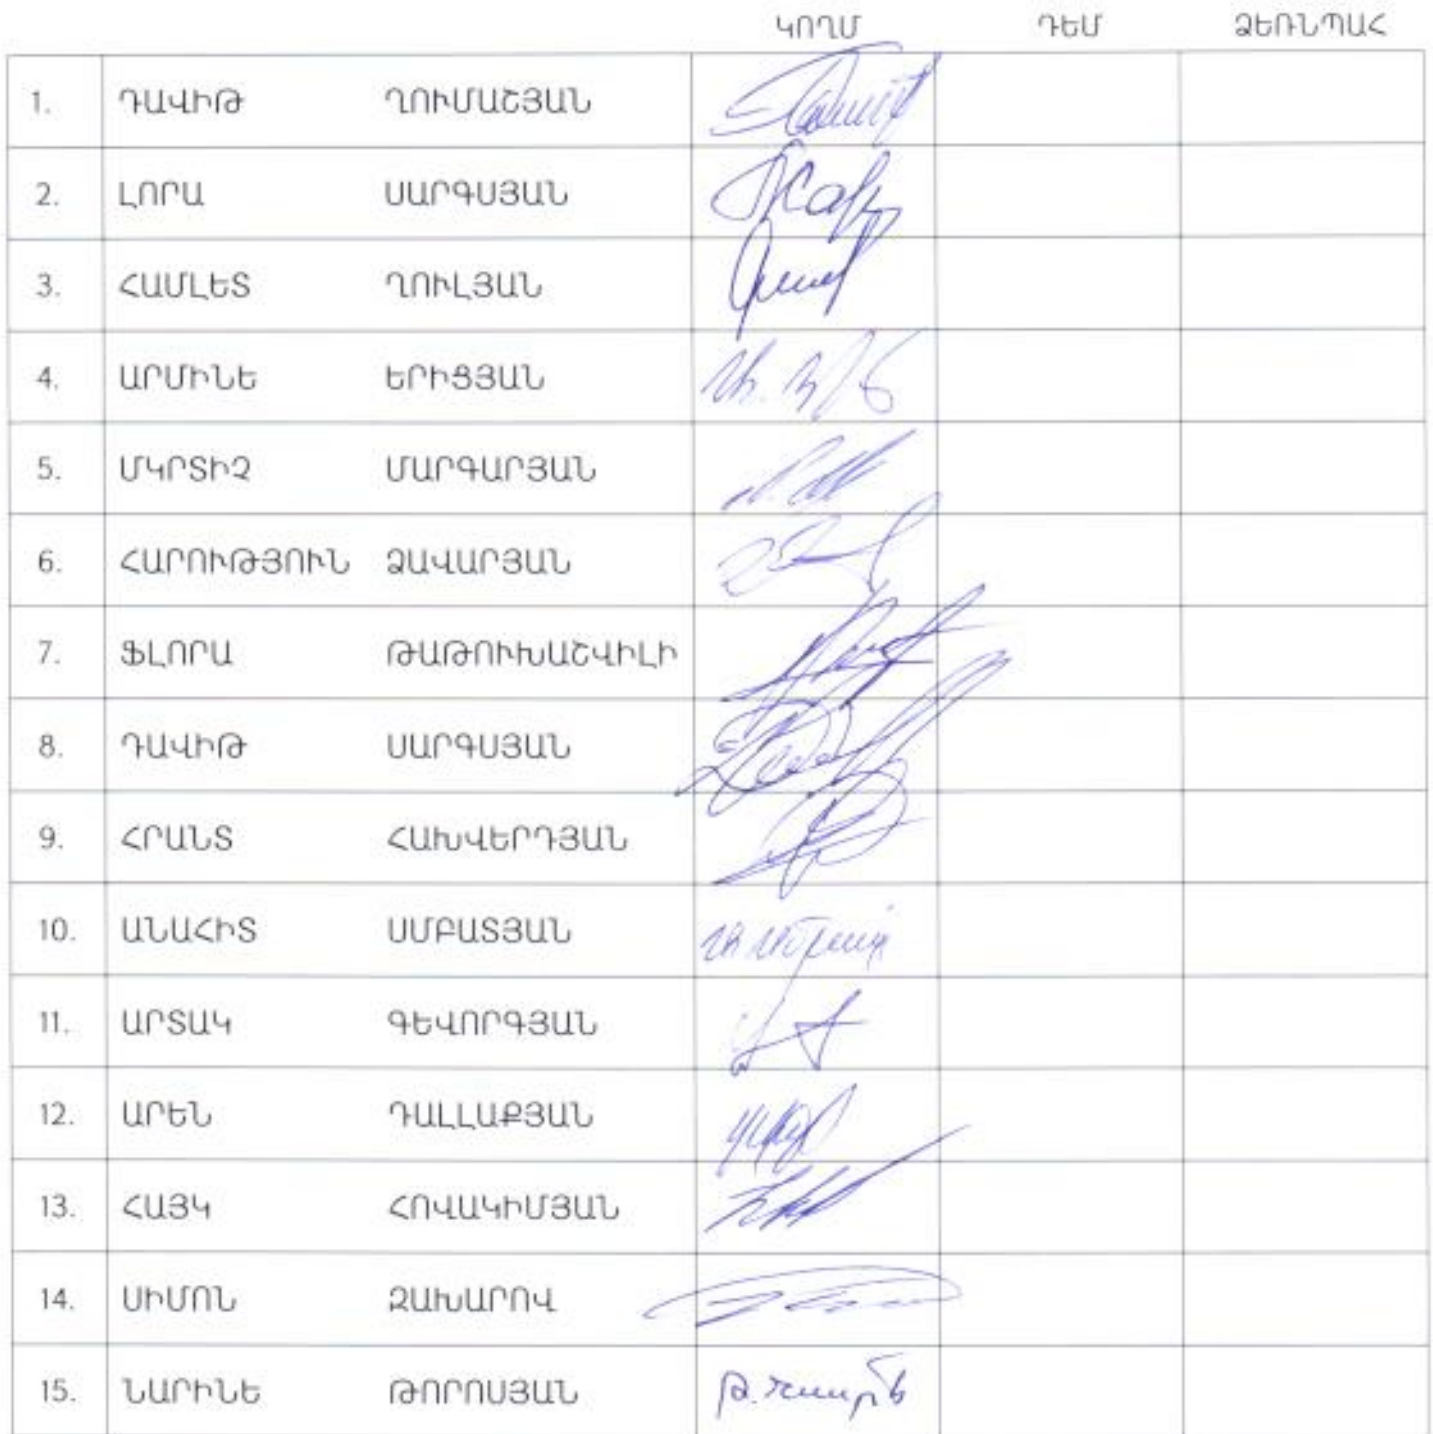 ԿՈՂՄ ԴԵՄ ՁԵՌՆՊԱՀ
1. ԴԱՎԻԹ ՂՈՒՄԱՇՅԱՆ
2. ԼՈՐԱ ՍԱՐԳՍՅԱՆ
3. ՀԱՄԼԵՏ ՂՈՒԼՅԱՆ
4. ԱՐՄԻՆԵ ԵՐԻՑՅԱՆ
5. ՄԿՐՏԻՉ ՄԱՐԳԱՐՅԱՆ
6. ՀԱՐՈՒԹՅՈՒՆ ՁԱՎԱՐՅԱՆ
7. ՖԼՈՐԱ ԹԱԹՈՒԽԱՇՎԻԼԻ
8. ԴԱՎԻԹ ՍԱՐԳՍՅԱՆ
9. ՀՐԱՆՏ ՀԱԽՎԵՐԴՅԱՆ
10. ԱՆԱՀԻՏ ՍՄԲԱՏՅԱՆ
11. ԱՐՏԱԿ ԳԵՎՈՐԳՅԱՆ
12. ԱՐԵՆ ԴԱԼԼԱՔՅԱՆ
13. ՀԱՅԿ ՀՈՎԱԿԻՄՅԱՆ
14. ՍԻՄՈՆ ԶԱԽԱՐՈՎ
15. ՆԱՐԻՆԵ ԹՈՐՈՍՅԱՆ